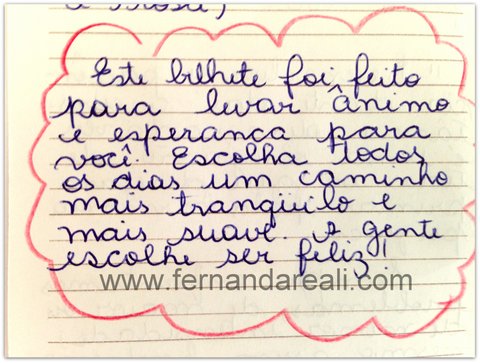 Este bilhete foi feito
para levar ânimo
e esperança para
você. Escolha todos
os dias um caminho
mais tranqüilo e
mais suave. A gente
escolhe ser feliz!
www.fernandareali.com